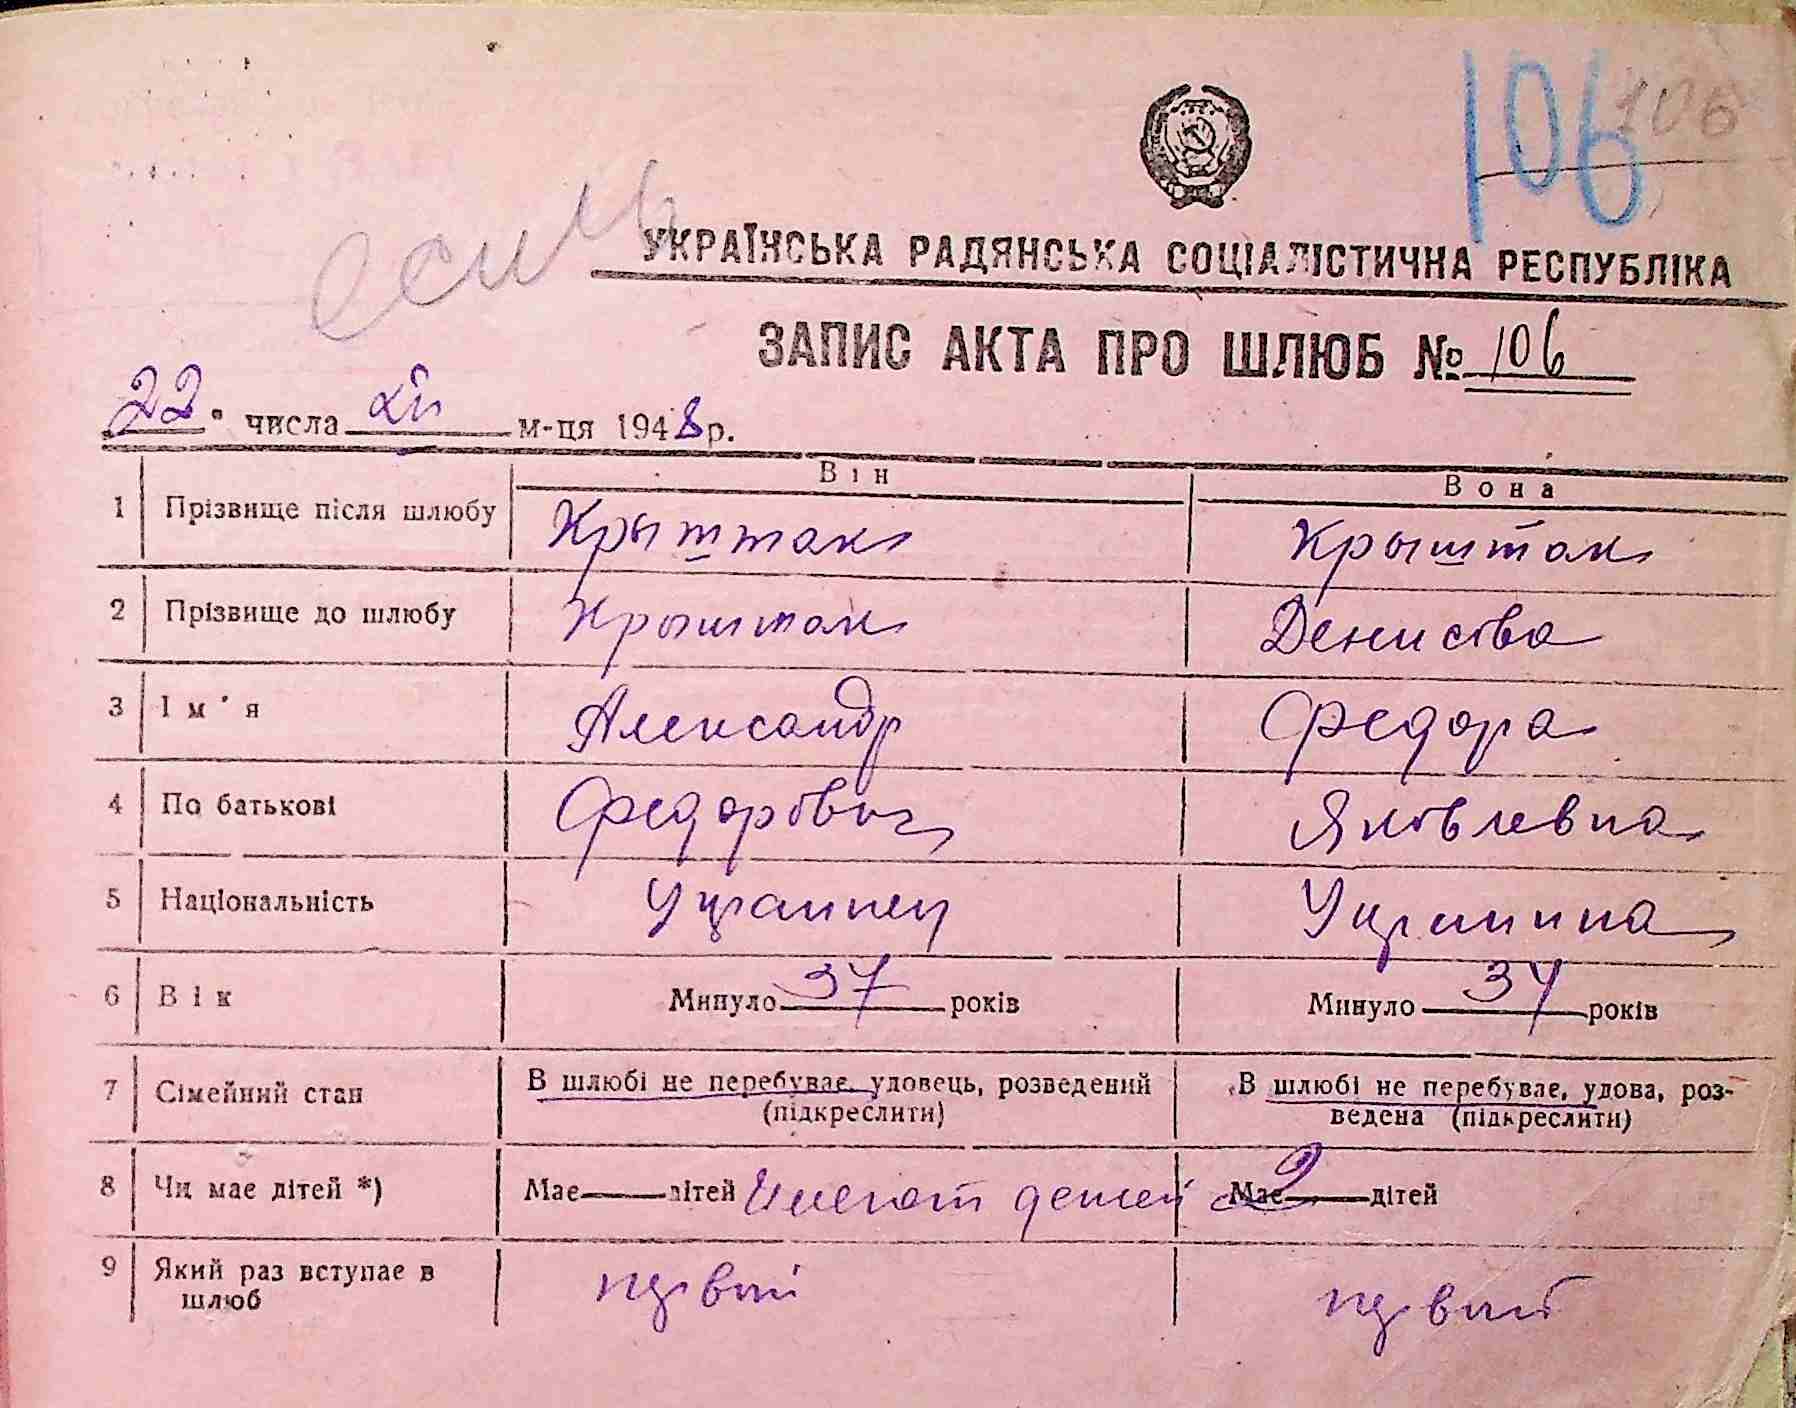 106 106
есть
УКРАЇНСЬКА РАДЯНСЬКА СОЦІАЛІСТИЧНА РЕСПУБЛІКА
ЗАПИС АКТА ПРО ШЛЮБ № 106
22 числа м-ця 1948 р.
Він Вона
1 Прізвище після шлюбу Крыштак Крыштак
2 Прізвище до шлюбу Крыштак Денисова
3 Ім'я Александр Федора
4 По батькові Федорович Яковлевна
5 Національність Украинец Украинка
6 Вік Минуло 37 років Минуло 34 років
7 Сімейний стан В шлюбі не перебуває, удовець, розведений В шлюбі не перебуває, удова, роз-
(підкреслити) ведена (підкреслити)
8 Чи має дітей *) Має дітей Имеют детей Має 2 дітей
9 Який раз вступає в
шлюб первый первый